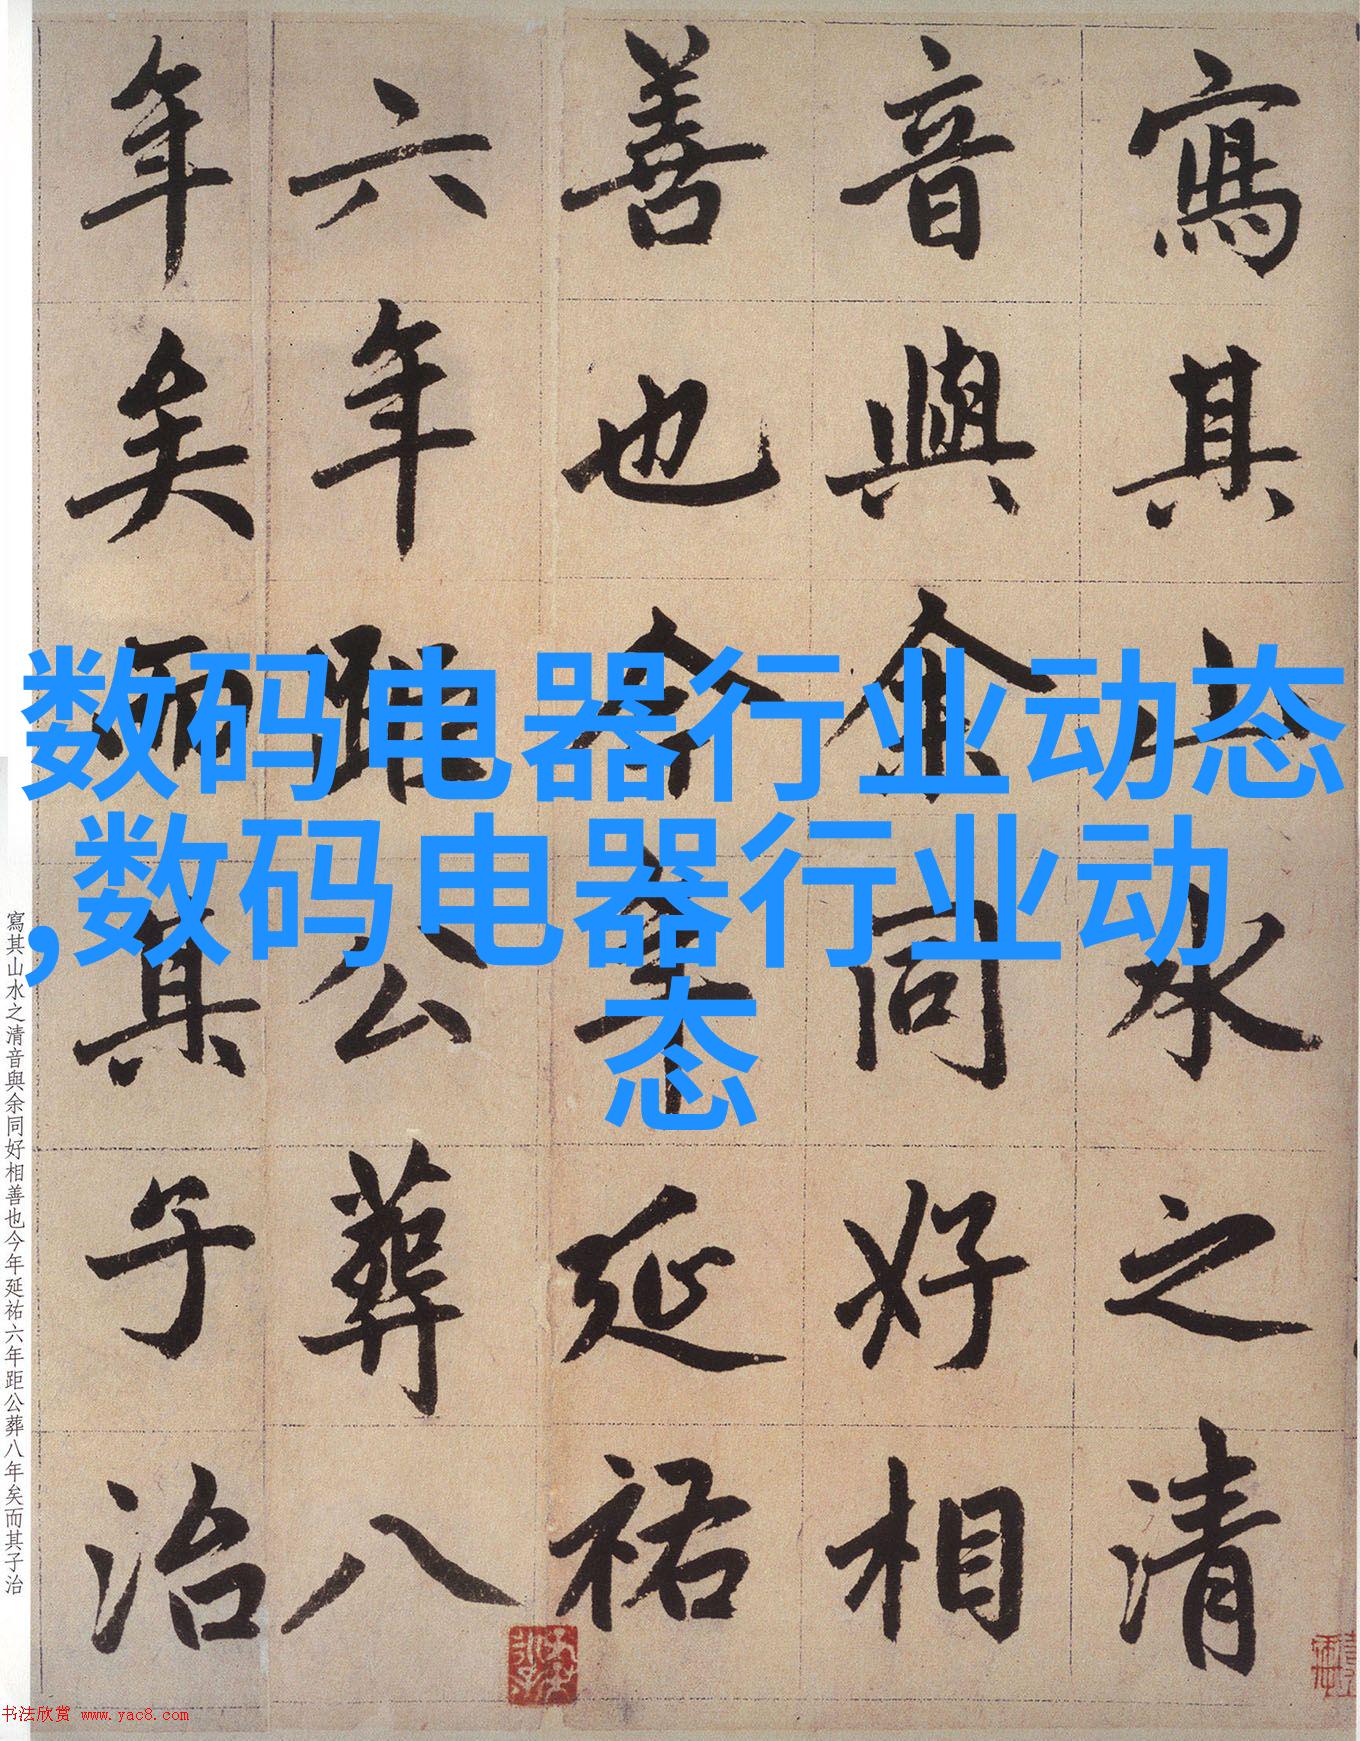 数码电器行业动态
,数码电器行业动
态
寫其山水之清
音與余同好相
善也今年延祐
六年距公葬八
年矣而其子治
寫其山水之清音與余同好相善也今年延祐六年距公葬八年矣而其子治
书法欣赏 www.yac8.com